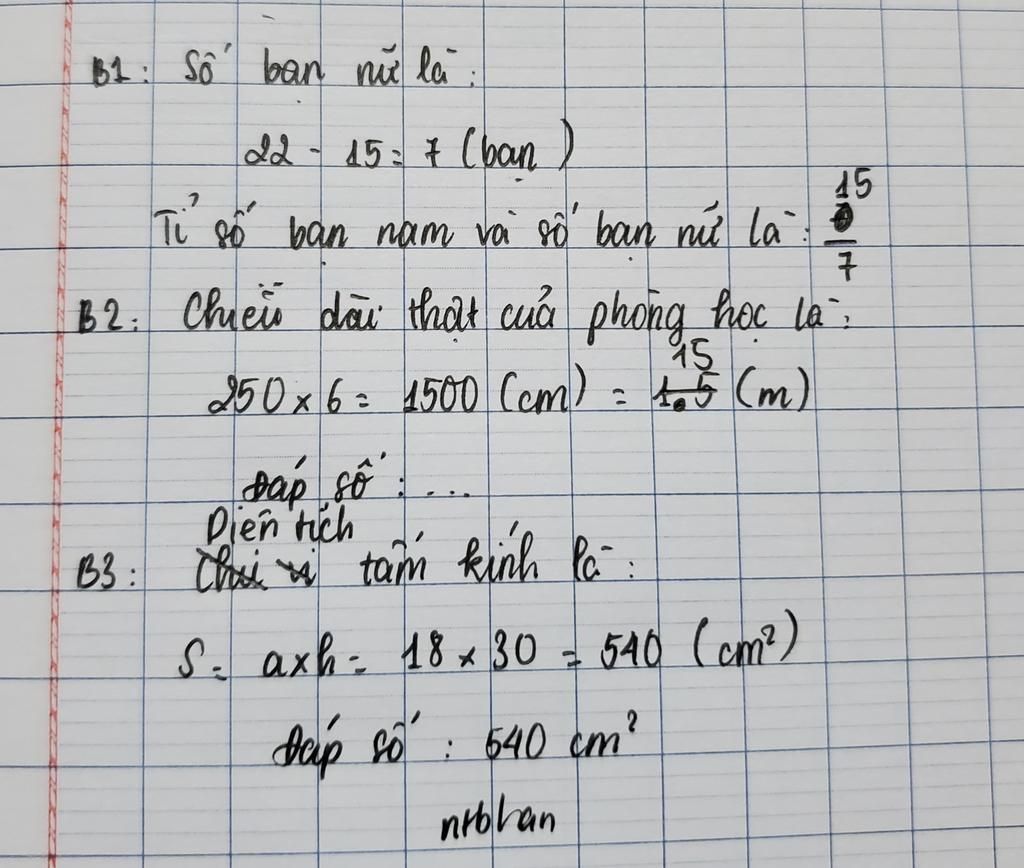 B1: Số bạn nữ là:
22 - 15 = 7 (bạn)
Tỉ số bạn nam và số bạn nữ là: 15/7
B2: Chiều dài thật của phòng học là:
250 x 6 = 1500 (cm) = 15 (m)
Đáp số: ...
Diện tích
B3: Chu vi tấm kính là:
S = a x h = 18 x 30 = 540 (cm²)
Đáp số: 540 cm²